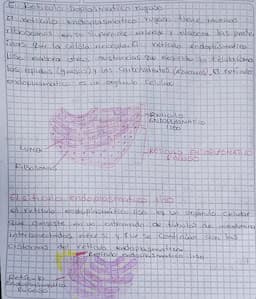 Reticulo Endoplasmatico rugoso
El reticulo endoplasmatico rugoso tiene muchos
ribosomas en su superficie externa y elabora las proteinas
que la célula necesita. El reticulo endoplasmatico
liso elabora otras sustancias que necesita la célula como
los lipidos (grasas) y los carbohidratos (azúcares). El reticulo
endoplasmatico es un organulo celular
RETICULO
ENDOPLASMATICO
LISO
LUMEN
RETICULO ENDOPLASMATICO
RUGOSO
RIBOSOMAS
El reticulo endoplasmatico liso
El reticulo endoplasmatico liso es un organulo celular
que consiste en un entramado de tubulos de membrana
interconectados entre si y que se continuan con las
cisternas del reticulo endoplasmatico
Reticulo endoplasmatico liso
Reticulo
endoplasmatico
rugoso